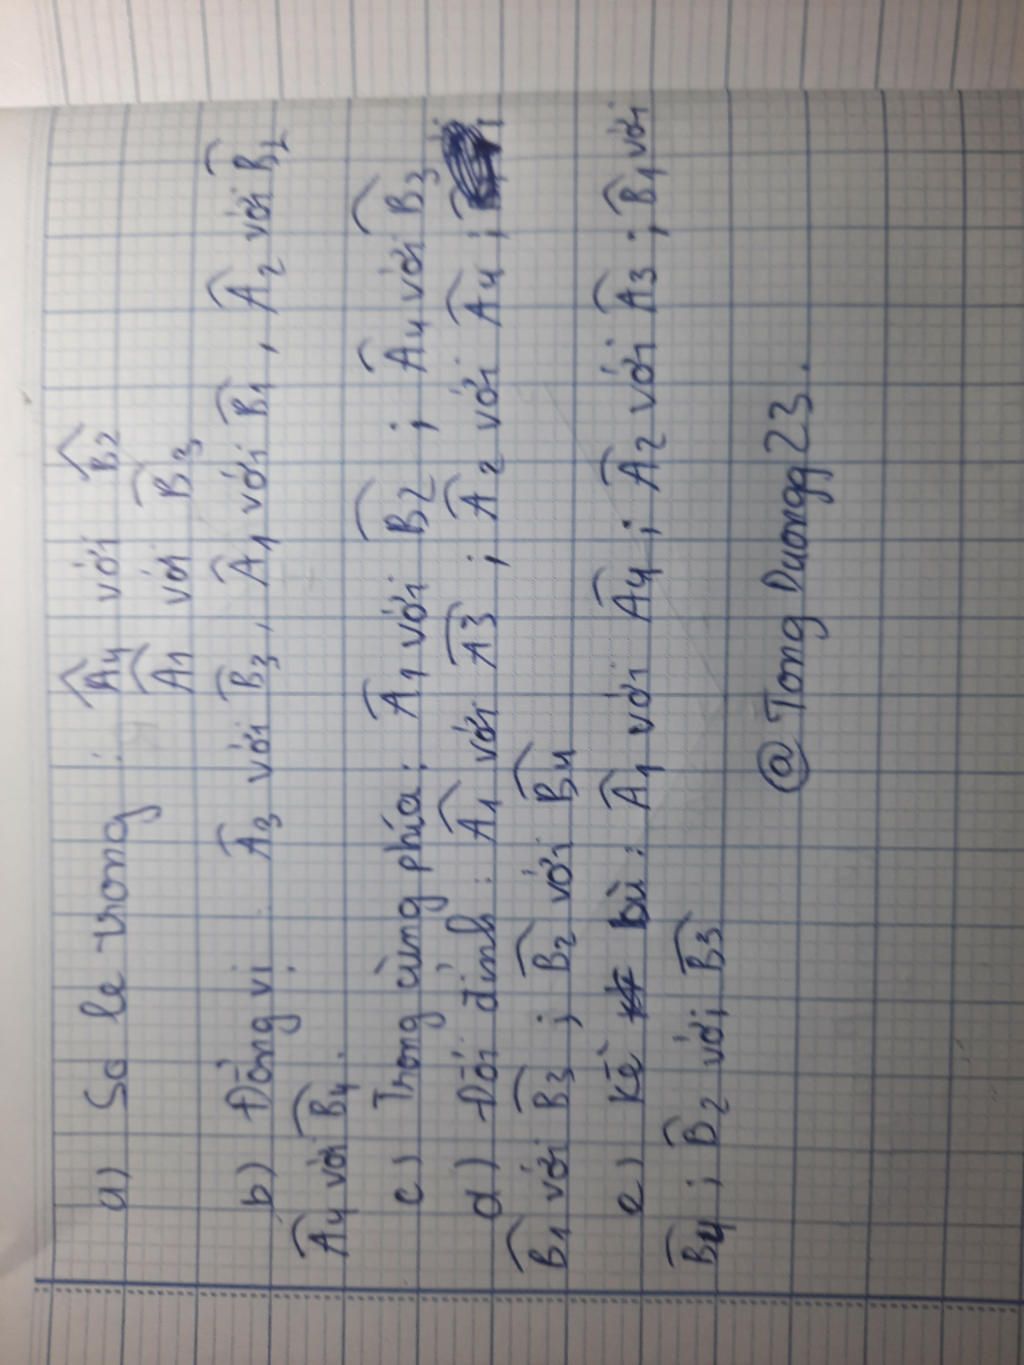 a) So le trong : Â4 với B̂2
Â1 với B̂3
b) Đồng vị : Â3 với B̂3, Â1 với B̂1, Â2 với B̂2
Â4 với B̂4.
c) Trong cùng phía: Â1 với B̂2 ; Â4 với B̂3
d) Đối đỉnh : Â1 với Â3 ; Â2 với Â4 ;
B̂1 với B̂3 ; B̂2 với B̂4
e) Kề bù : Â1 với Â4 ; Â2 với Â3 ; B̂1 với
B̂4 ; B̂2 với B̂3
@Tong Duongg23.